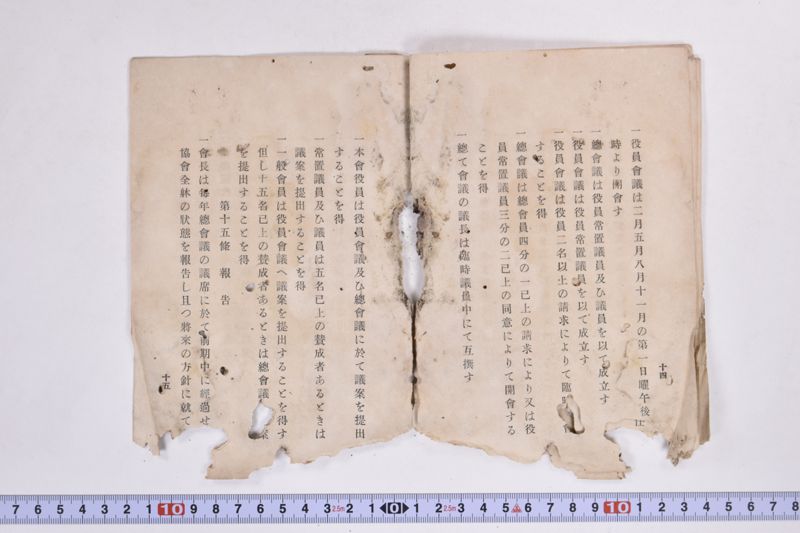 一役員會議は二月五月八月十一月の第一日曜午後
時より開會す
一總會議は役員常置議員及ひ議員を以て成立す
一役員會議は役員常置議員を以て成立す
一役員會議は役員二名以上の請求によりて臨
することを得
一總會議は總會員四分の一已上の請求により又は役
員常置議員三分の二已上の同意によりて開會する
ことを得
一總て會議の議長は臨時議員中にて互撰す
十四
一本會役員は役員會議及ひ總會議に於て議案を提出
することを得
一常置議員及ひ議員は五名已上の賛成者あるときは
議案を提出することを得
一一般會員は役員會議へ議案を提出することを得す
但し十五名已上の賛成者あるときは總會議 案
を提出することを得
第十五條 報告
一會長は每年總會議の議席に於て前期中に經過せ
協會全躰の狀態を報告し且つ將來の方針に就て
十五
7 6 5 4 3 2 1 10 9 8 7 6 5 4 3 2 1 0 1 2 3 4 5 6 7 8 9 10 1 2 3 4 5 6 7 8